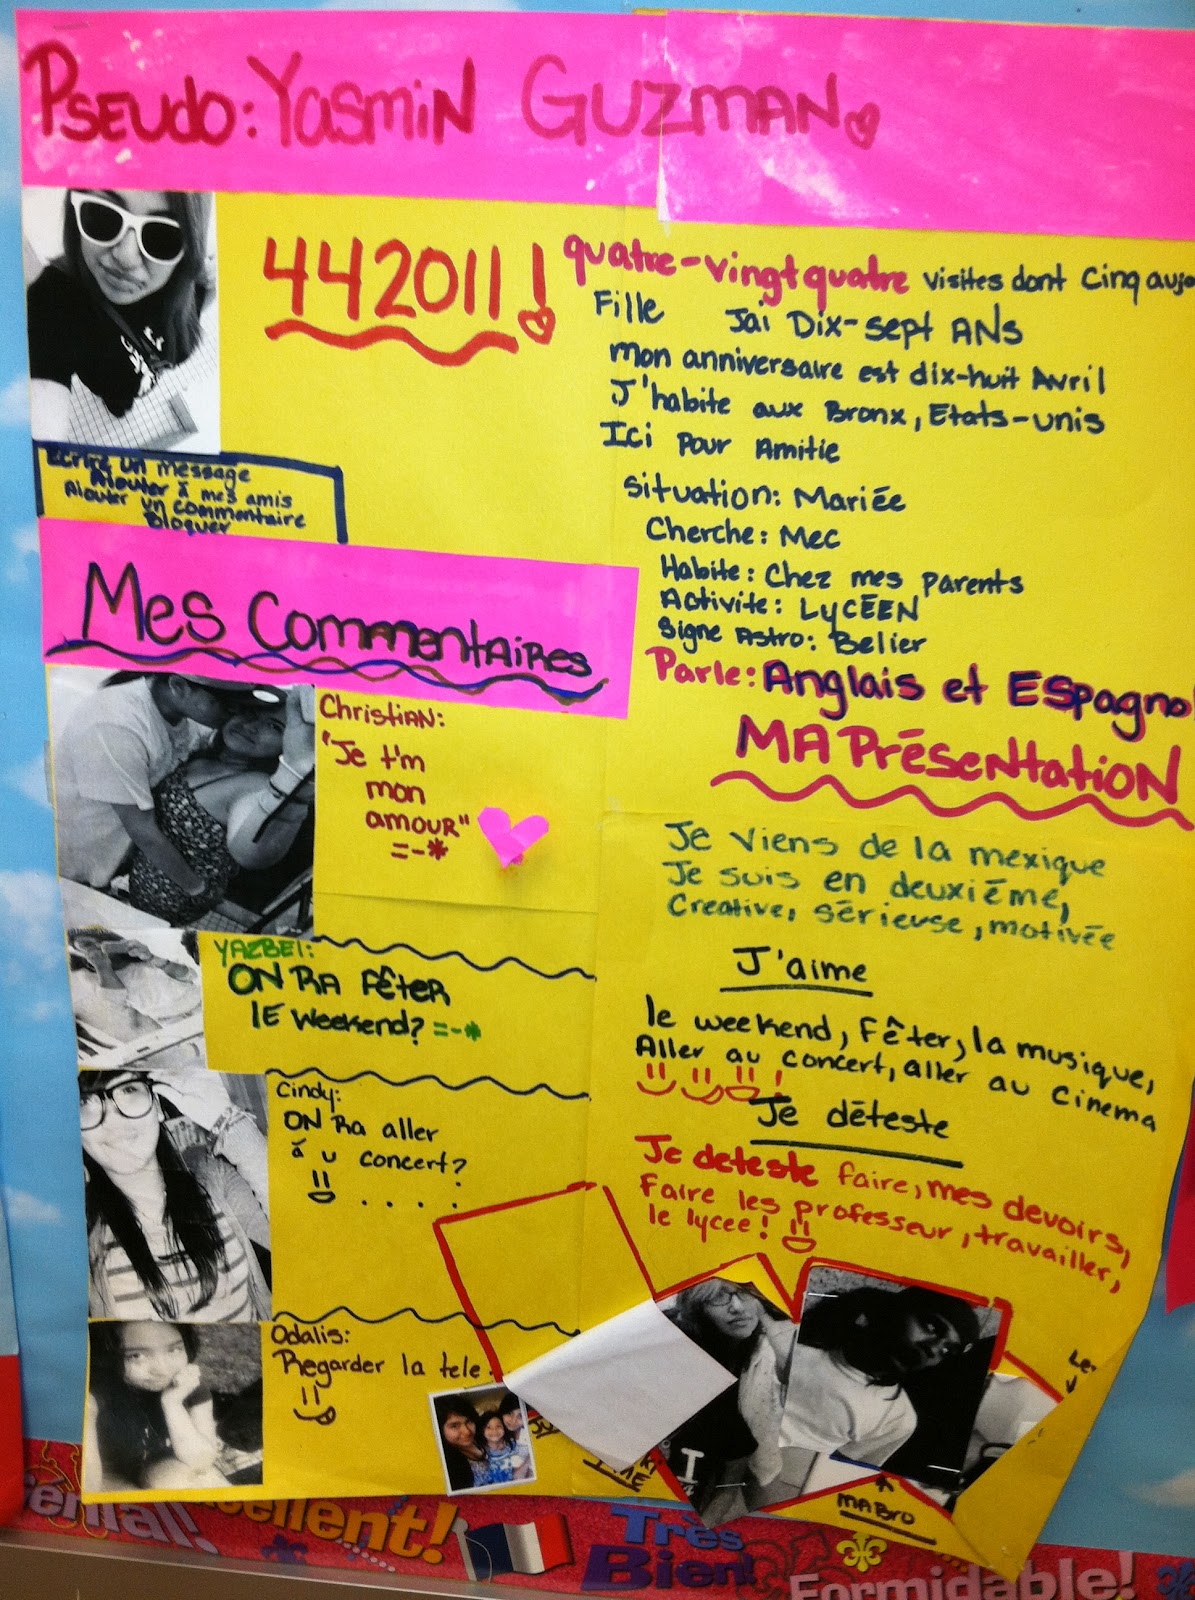 Pseudo: Yasmin Guzman
442011!
quatre-vingt quatre visites dont Cinq aujo
Fille Jai Dix-sept ANs
mon anniversaire est dix-huit Avril
J'habite aux Bronx, Etats-unis
Ici pour Amitie
Situation: Mariée
Cherche: Mec
Habite: Chez mes parents
Activite: LYCÉEN
Signe Astro: Belier
Parle: Anglais et Espagno
Ecrire un message
Ajouter à mes amis
Ajouter un commentaire
Bloquer
Mes Commentaires
Christian:
"Je t'm
mon
amour"
=-*
YAZBEI:
ON RA FÊTER
lE weekend? =-*
Cindy:
ON Ra aller
á u concert?
. . . .
Odalis:
Regarder la tele.
MA Présentation
Je viens de la mexique
Je suis en deuxiéme,
Creative, sérieuse, motivée
J'aime
le weekend, Fêter, la musique,
Aller au concert, aller au cinema
Je déteste
Je deteste faire, mes devoirs,
Faire les professeur, travailler,
le lycee!
I
MA BRO
Excellent!
Très
Bien!
Formidable!